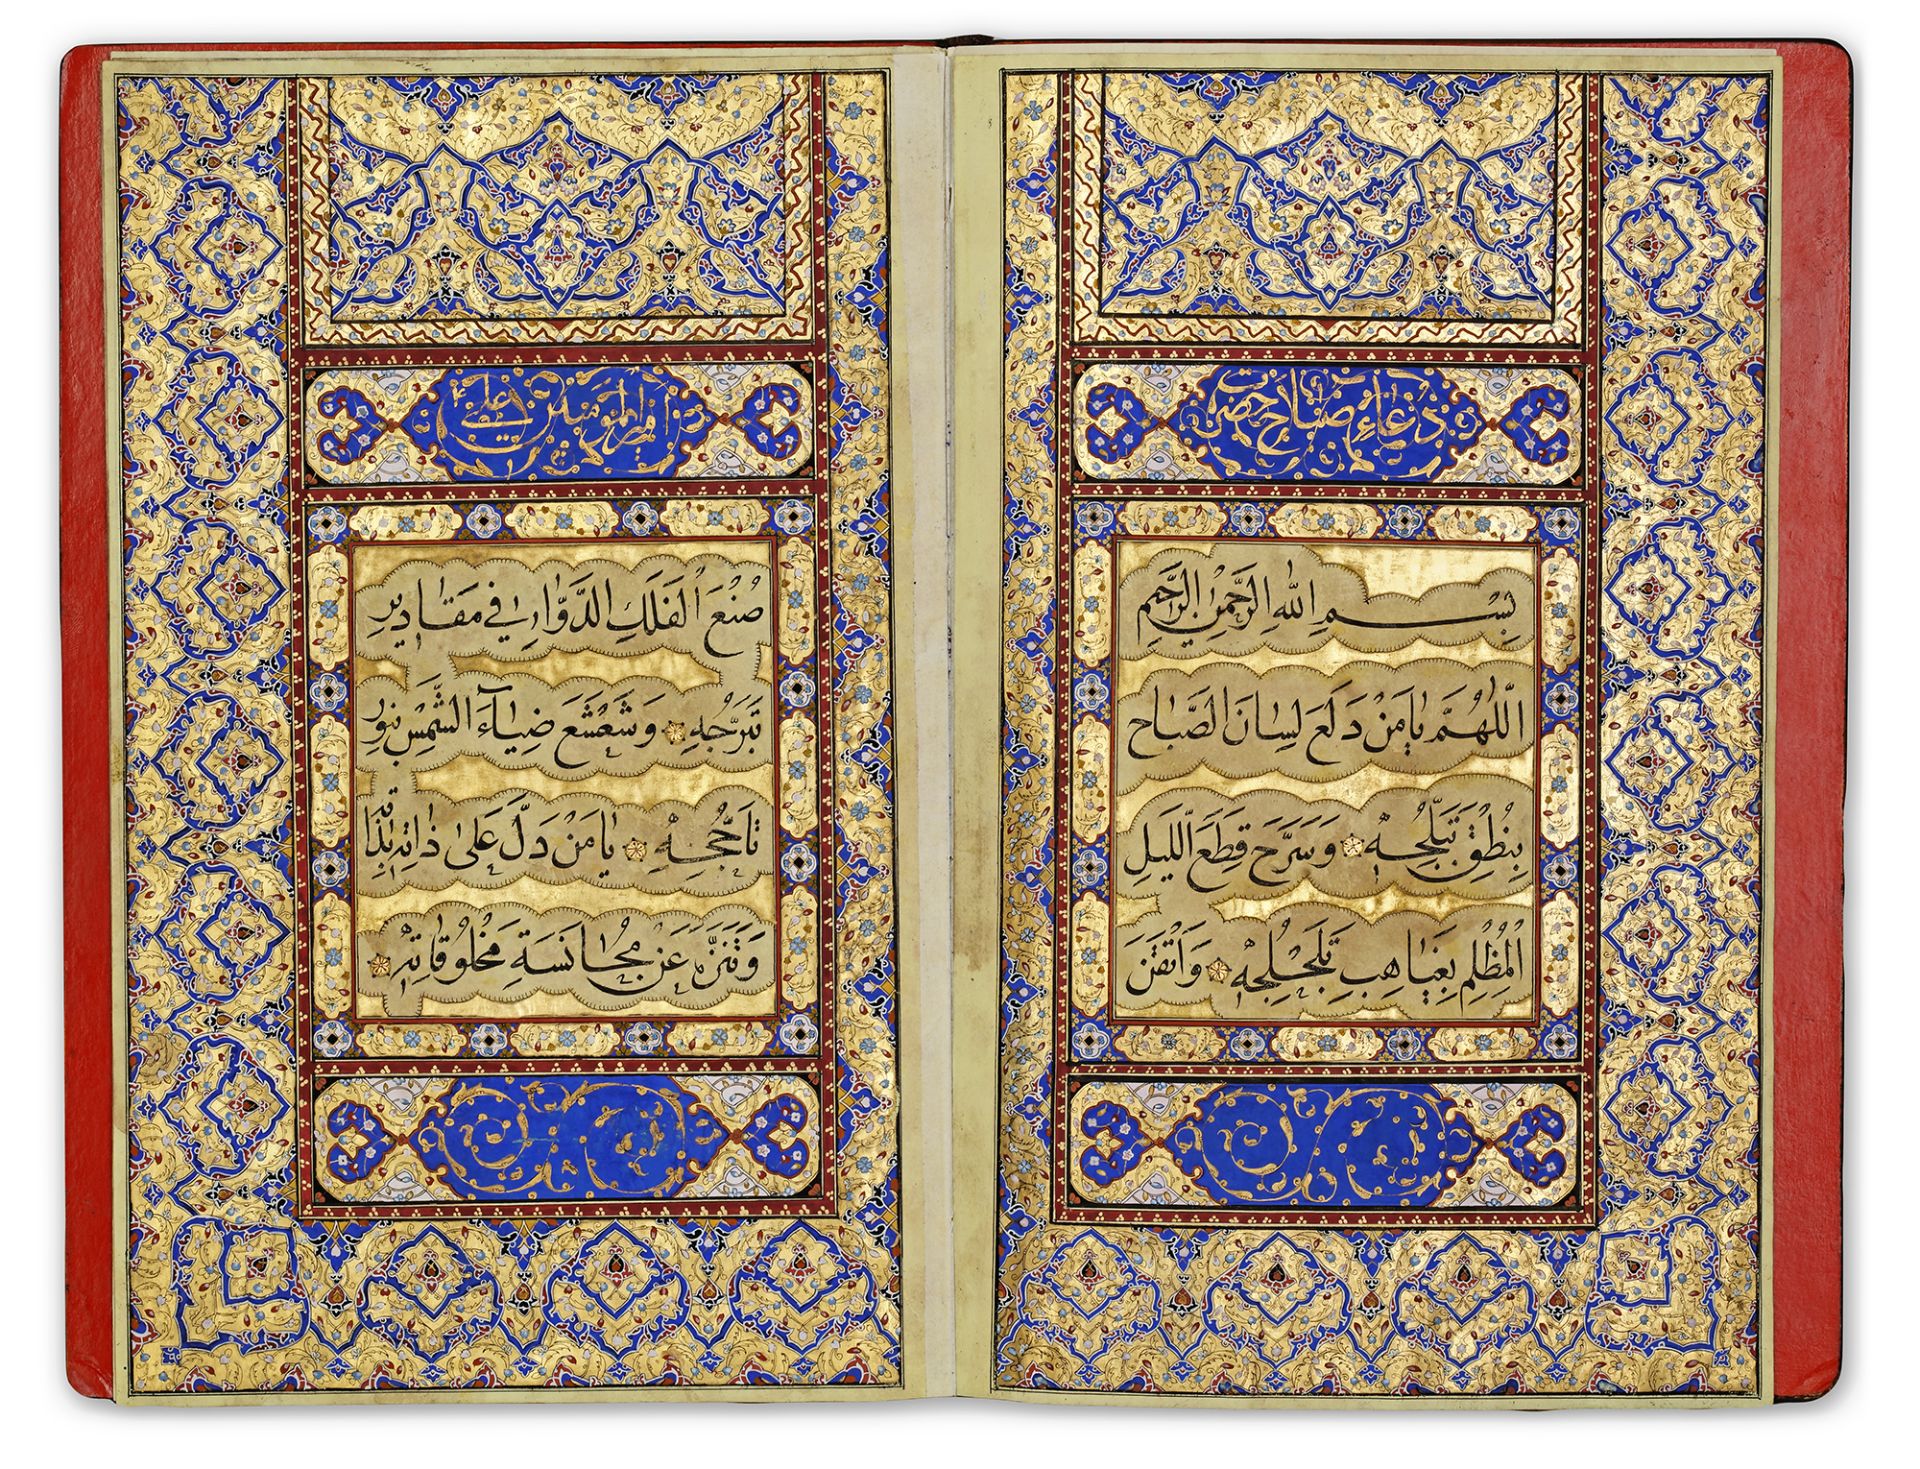 دُعَاءِ صَبَاحِ حَضْرَتِ
بِسْمِ اللهِ الرَّحْمٰنِ الرَّحِيمِ
اَللّٰهُمَّ يَا مَنْ دَلَعَ لِسَانَ الصَّبَاحِ
بِنُطْقِ تَبَلُّجِهِ وَسَرَّحَ قِطَعَ اللَّيْلِ
الْمُظْلِمِ بِغَيَاهِبِ تَلَجْلُجِهِ وَاَتْقَنَ
اَمِيرِ الْمُؤْمِنِينَ عَلِي
صُنْعَ الْفَلَكِ الدَّوَّارِ فِي مَقَادِيرِ
تَبَرُّجِهِ وَشَعْشَعَ ضِيَاءَ الشَّمْسِ بِنُورِ
تَاَجُّجِهِ يَا مَنْ دَلَّ عَلٰى ذَاتِهِ بِذَاتِهِ
وَتَنَزَّهَ عَنْ مُجَانَسَةِ مَخْلُوقَاتِهِ